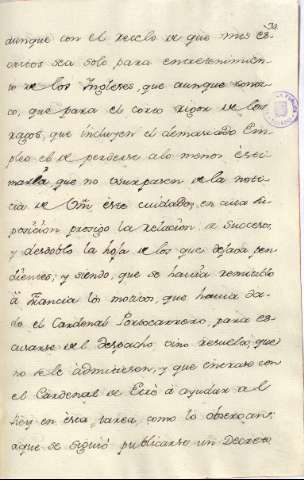 aunque con el recelo de que mis es-
critos sea solo para entretenimien-
to de los Ingleses, que aunque conoz-
co, que para el corto rigor de los
rasgos, que incluyen el demasiado Em-
pleo el de perderse a lo menos, esti-
mara, que no usurpasen de la noti-
cia de Vm este cuidado; en cuia su-
posicion prosigo la relacion, ò sucesos,
y desdoblo la hoja de los que dejada pen-
dientes; y siendo, que se havia remitido
â Francia los motivos, que havia da-
do el Cardenal Portocarrero, para es-
cusarse del despacho vino resuelto, que
no se le admitiesen, y que entrase con
el Cardenal de Etrè â ayudar a el
Rey en esta tarea, como lo observan;
a que se siguiò publicarse un Decreto